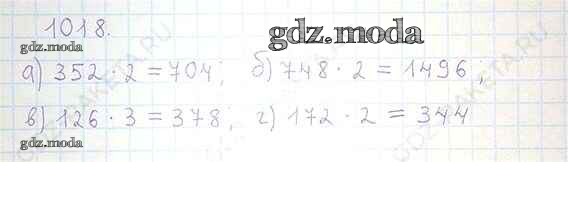 1018.
gdz.moda
gdz.moda
а) 352 · 2 = 704; б) 748 · 2 = 1496;
в) 126 · 3 = 378; г) 172 · 2 = 344
gdz.moda
GDZ-RAKETA.RU